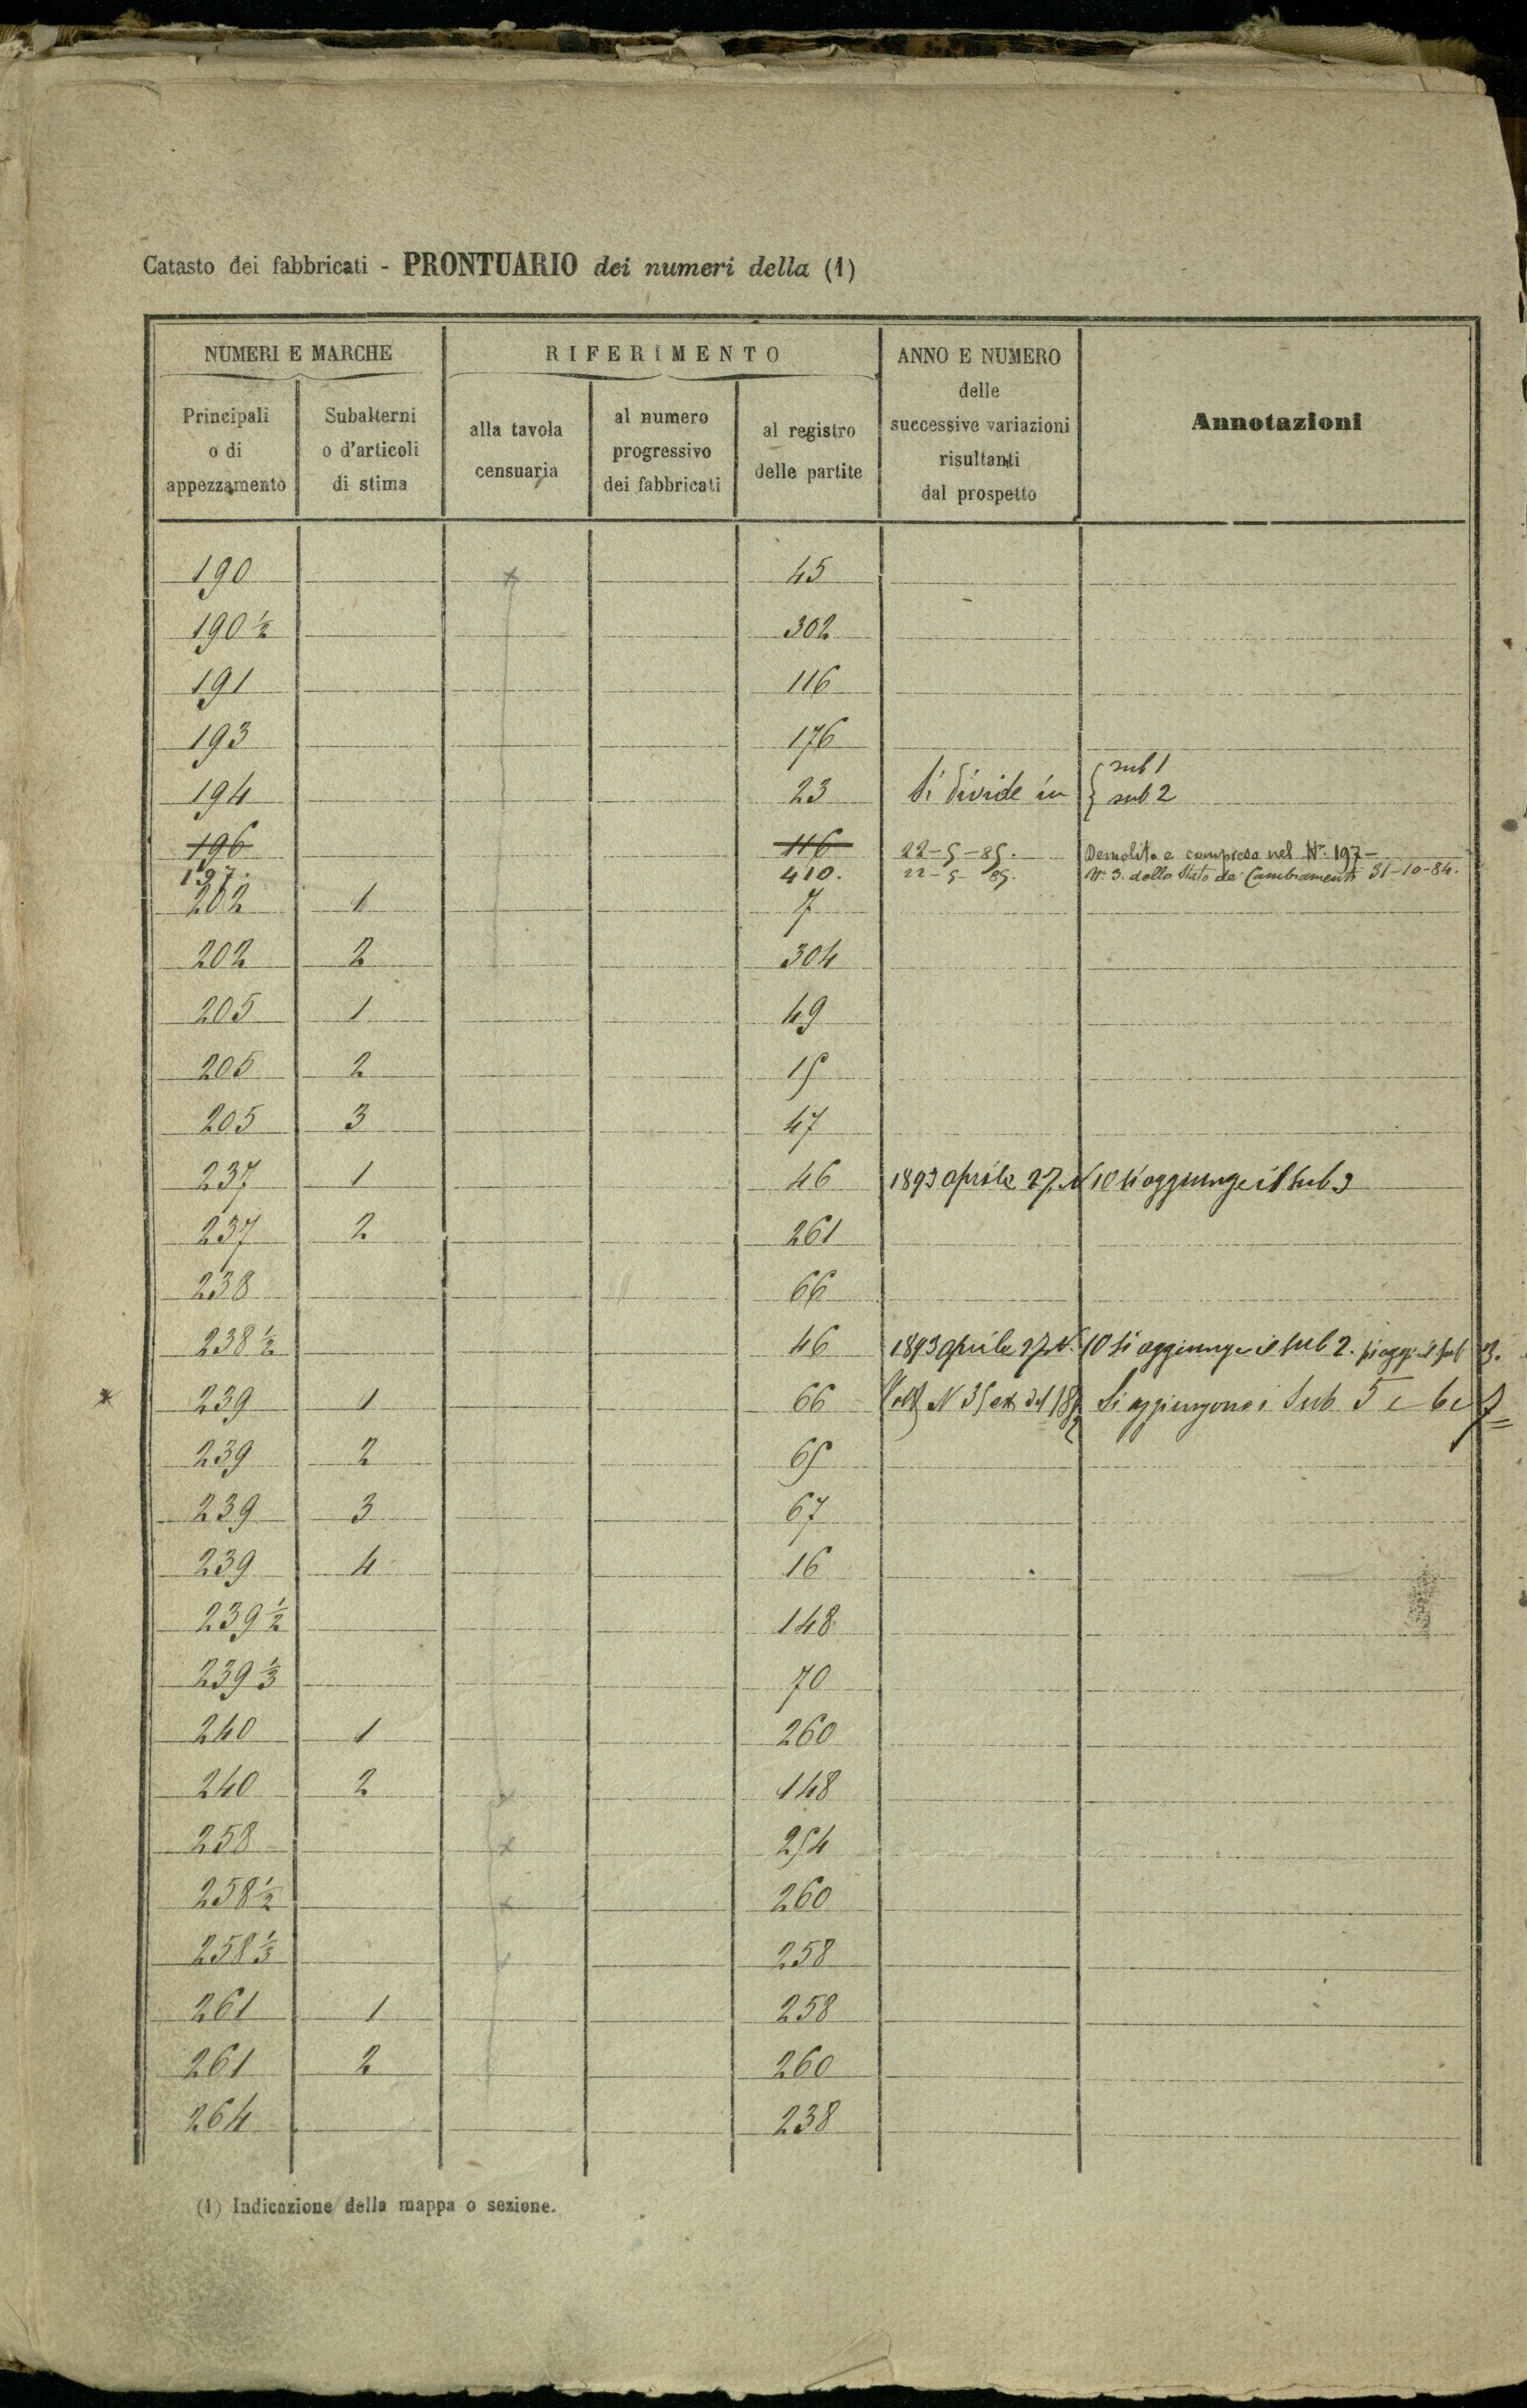 Catasto dei fabbricati - PRONTUARIO dei numeri della (1)
NUMERI E MARCHE
RIFERIMENTO
ANNO E NUMERO
delle
successive variazioni
risultanti
dal prospetto
Annotazioni
Principali
o di
appezzamento
Subalterni
o d'articoli
di stima
alla tavola
censuaria
al numero
progressivo
dei fabbricati
al registro
delle partite
190 45
190 1/2 302
191 116
193 176
194 23 Si divide in { sub 1
{ sub 2
196 116 22-5-85. Demolito e compreso nel N.º 197-
197. 410. 22-5-85. N.º 3. dello Stato de' Cambiamenti 31-10-84.
202 1 7
202 2 304
205 1 49
205 2 15
205 3 47
237 1 46 1893 aprile 27. N 10 si aggiunge il sub 3
237 2 261
238 66
238 1/2 46 1893 aprile 27 N. 10 si aggiunge il sub 2. si aggi il sub 3.
239 1 66 N 35 ex del Si aggiungono i Sub 5 e 6 e 7
239 2 65
239 3 67
239 4 16
239 1/2 148
239 1/3 70
240 1 260
240 2 148
258 254
258 1/2 260
258 1/3 258
261 1 258
261 2 260
264 238
(1) Indicazione della mappa o sezione.